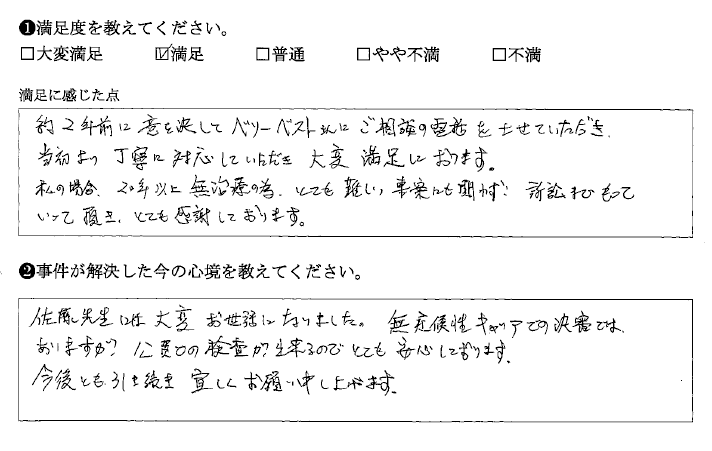 ❶満足度を教えてください。
□大変満足 ☑満足 □普通 □やや不満 □不満
満足に感じた点
約2年前に意を決してベリーベストさんにご相談の電話をさせていただき、
当初より丁寧に対応していただき大変満足しております。
私の場合、20年以上無治療の為、とても難しい事案にも関わず、訴訟までもって
いって頂き、とても感謝しております。
❷事件が解決した今の心境を教えてください。
佐藤先生には大変お世話になりました。無症候性キャリアでの決着では、
ありますが、公費での検査が出来るのでとても安心しております。
今後とも引き続き宜しくお願い申し上げます。